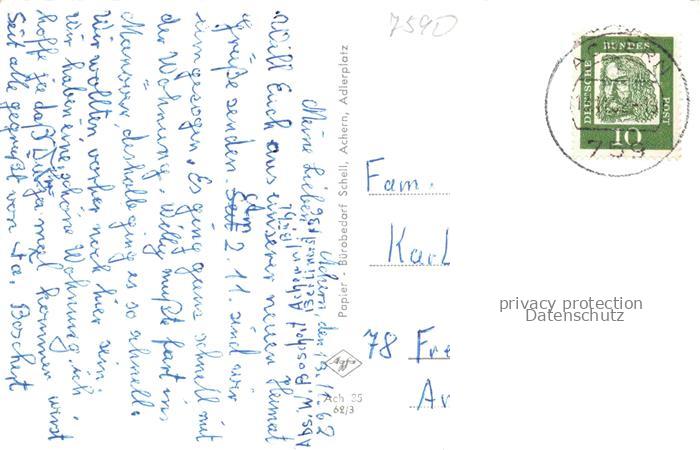 7590
Achern, den 13.11.62
Meine Lieben!
Will Euch aus unserer neuen Heimat
grüße senden. Am 2.11. sind wir
umgezogen. Es ging ganz schnell mit
der Wohnung. Willy mußte fort ins
Manöver, deshalb ging es so schnell.
Wir wollten vorher noch hier sein.
Wir haben eine schöne Wohnung, ich
hoffe ja daß Du ja mal kommen wirst
Seit alle gegrüßt von Fa. Boschert
Abs. W. Boschert Achern
Papier - Bürobedarf Schell, Achern, Adlerplatz
Agfa
Ach 35
62/3
DEUTSCHE BUNDES POST
10
ACHERN
759
Fam.
Karl
78 Fre
privacy protection
Datenschutz